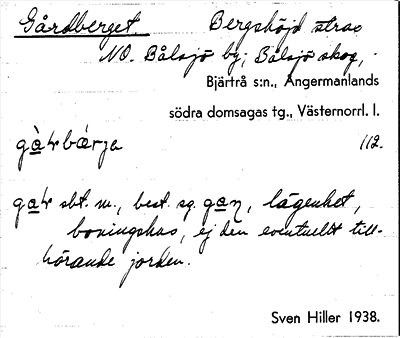 Gårdberget Bergshöjd strax
NO. Bålsjö by; Bålsjö skog,
Bjärtrå s:n., Ångermanlands
södra domsagas tg., Västernorrl. l.
112.
gàɽbárja
gaɽ sbt. m., best. sg. gaṇ, lägenhet,
boningshus, ej den eventuellt till-
hörande jorden.
Sven Hiller 1938.